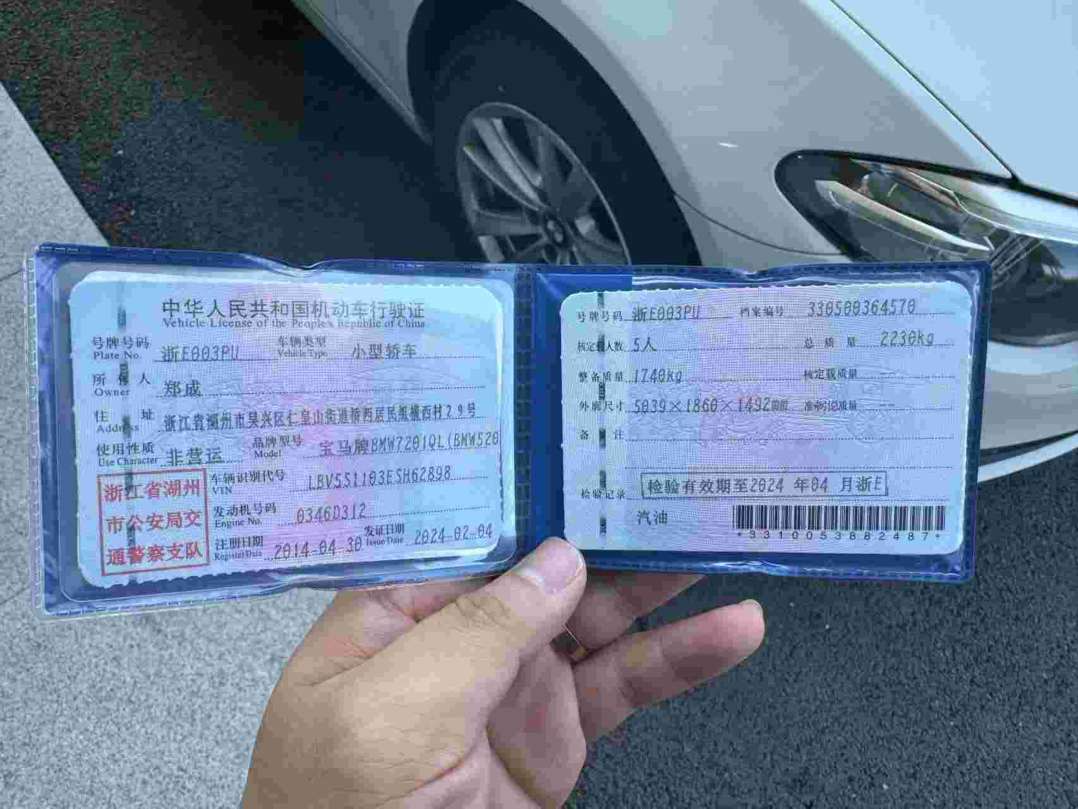 中华人民共和国机动车行驶证
Vehicle License of the People's Republic of China
号牌号码 Plate No. 浙E003PU 车辆类型 Vehicle Type 小型轿车
所有人 Owner 郑成
住址 Address 浙江省湖州市吴兴区仁皇山街道桥西居民组横西村29号
使用性质 Use Character 非营运 品牌型号 Model 宝马牌BMW7201QL(BMW520
浙江省湖州市公安局交通警察支队
车辆识别代号 VIN LBV5S1103ESH62898
发动机号码 Engine No. 0346D312
注册日期 Register Date 2014-04-30 发证日期 Issue Date 2024-02-04
号牌号码 浙E003PU 档案编号 330500364570
核定载人数 5人 总质量 2230kg
整备质量 1740kg 核定载质量 --
外廓尺寸 5039×1860×1492mm 准牵引总质量 --
备注
检验记录 检验有效期至2024年04月浙E
汽油
*3310053882487*